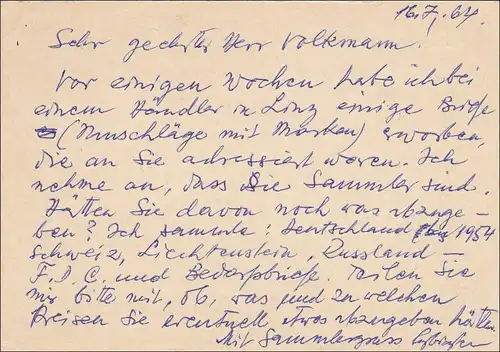 16.7.64.
Sehr geehrter Herr Volkmann.
Vor einigen Wochen habe ich bei
einem Händler in Linz einige Briefe
(Umschläge mit Marken) erworben,
die an Sie adressiert waren. Ich
nehme an, dass Sie Sammler sind.
Hätten Sie davon noch was abzuge-
ben? Ich sammle: Deutschland 1954
Schweiz, Liechtenstein, Russland –
F.D.C. und Bedarfsbriefe. Teilen Sie
mir bitte mit, ob, was und zu welchen
Preisen Sie eventuell etwas abzugeben hätten
Mit Sammlergruss